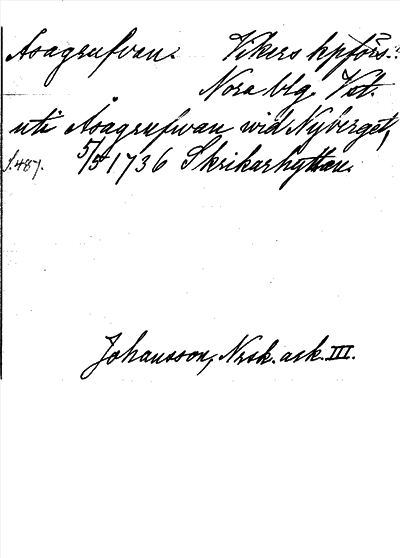 Åsagrufvan. Vikers kpförs.?
Nora blg. Vst.
uti Åsagrufwan wid Nyberget,
s. 487. 5/5 1736 Skrikarhyttan.
Johansson, Nrsk. ark. III.